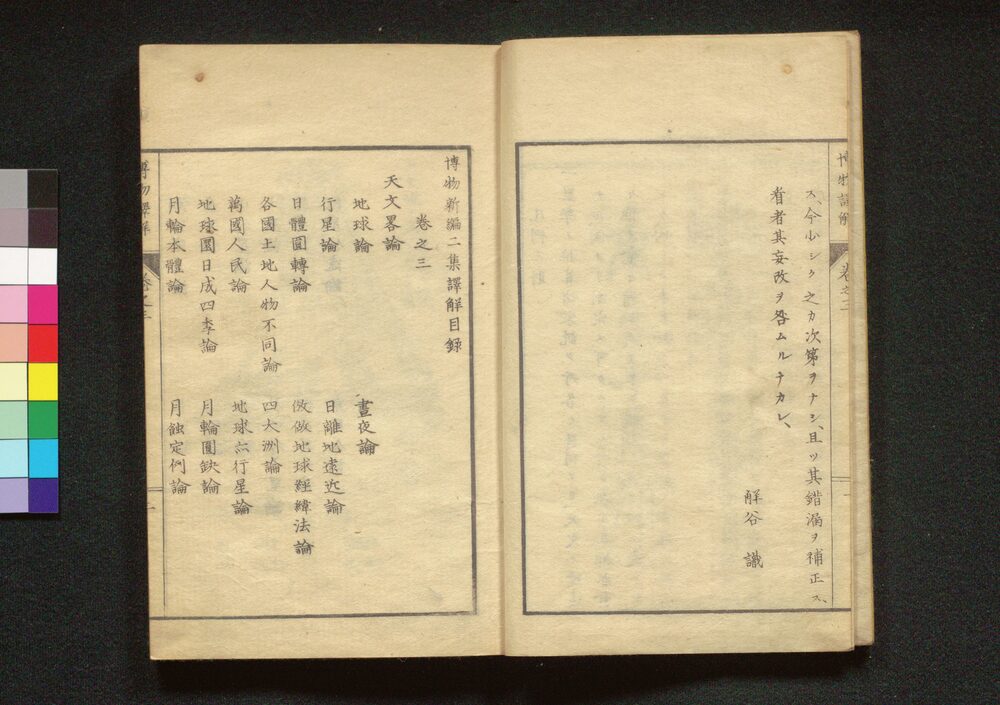 博物譯解 卷之三 一
ス、今少シク之カ次第ヲナシ、且ツ其錯漏ヲ補正ス、
看者其妄改ヲ咎ムルナカレ、
解谷 識
博物新編二集譯解目録
卷之三
天文畧論
地球論 晝夜論
行星論 日離地遠近論
日體圓轉論 倣做地球經緯法論
各國土地人物不同論 四大洲論
萬國人民論 地球亦行星論
地球圜日成四季論 月輪圓缺論
月輪本體論 月蝕定例論
博物譯解 卷之三 一